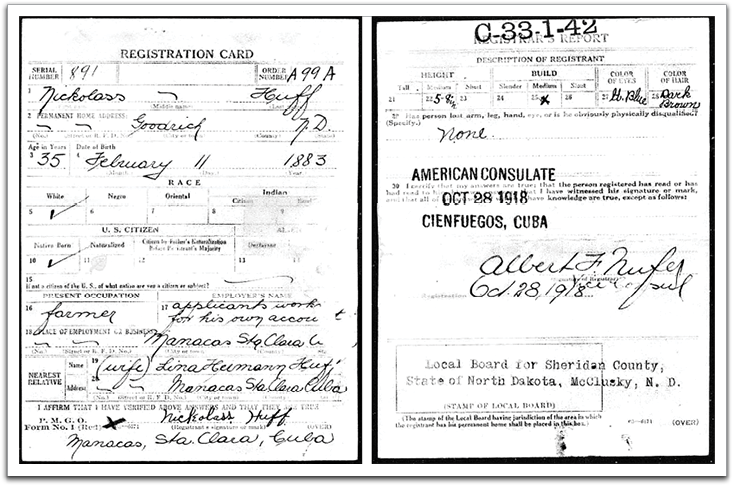 REGISTRATION CARD
SERIAL NUMBER 891 ORDER NUMBER A99A
1 Nickolass — Huff
2 PERMANENT HOME ADDRESS: Goodrich N.D.
Age in Years Date of Birth
3 35 4 February 11 1883
RACE
White Negro Oriental Indian
5 ✓ 6 7 8 9
U. S. CITIZEN
Native Born Naturalized Citizen by Father's Naturalization Before Registrant's Majority Declarant
10 ✓ 11 12 13
15
If not a citizen of the U. S., of what nation are you a citizen or subject?
PRESENT OCCUPATION EMPLOYER'S NAME
16 farmer 17 applicants works for his own account
18 PLACE OF EMPLOYMENT OR BUSINESS:
Manacas Sta. Clara
(No.) (Street or R. F. D. No.)
NEAREST RELATIVE Name 19 (wife) Lina Huff
Address 20 Manacas Sta. Clara Cuba
I AFFIRM THAT I HAVE VERIFIED ABOVE ANSWERS AND THAT THEY ARE TRUE
P. M. G. O.
Form No. 1 (Red) x Nickolass Huff
(Registrant's signature or mark) (OVER)
Manacas, Sta. Clara, Cuba
C-33-1-42
REGISTRAR'S REPORT
DESCRIPTION OF REGISTRANT
HEIGHT BUILD COLOR OF EYES COLOR OF HAIR
Tall Medium Short Slender Medium Stout
21 22 5-8½ 23 24 25 x 26 27 Blue 28 Dark Brown
29 Has person lost arm, leg, hand, eye, or is he obviously physically disqualified?
(Specify.) None.
30 I certify that my answers are true; that the person registered has read or has had read to him his own answers; that I have witnessed his signature or mark, and that all of his answers of which I have knowledge are true, except as follows:
AMERICAN CONSULATE
OCT 28 1918
CIENFUEGOS, CUBA
Albert F. Nufer
Vice Consul
Oct. 28, 1918
Local Board for Sheridan County,
State of North Dakota, McClusky, N. D.
(STAMP OF LOCAL BOARD)
(The stamp of the Local Board having jurisdiction of the area in which the registrant has his permanent home shall be placed in this box.)
(OVER)